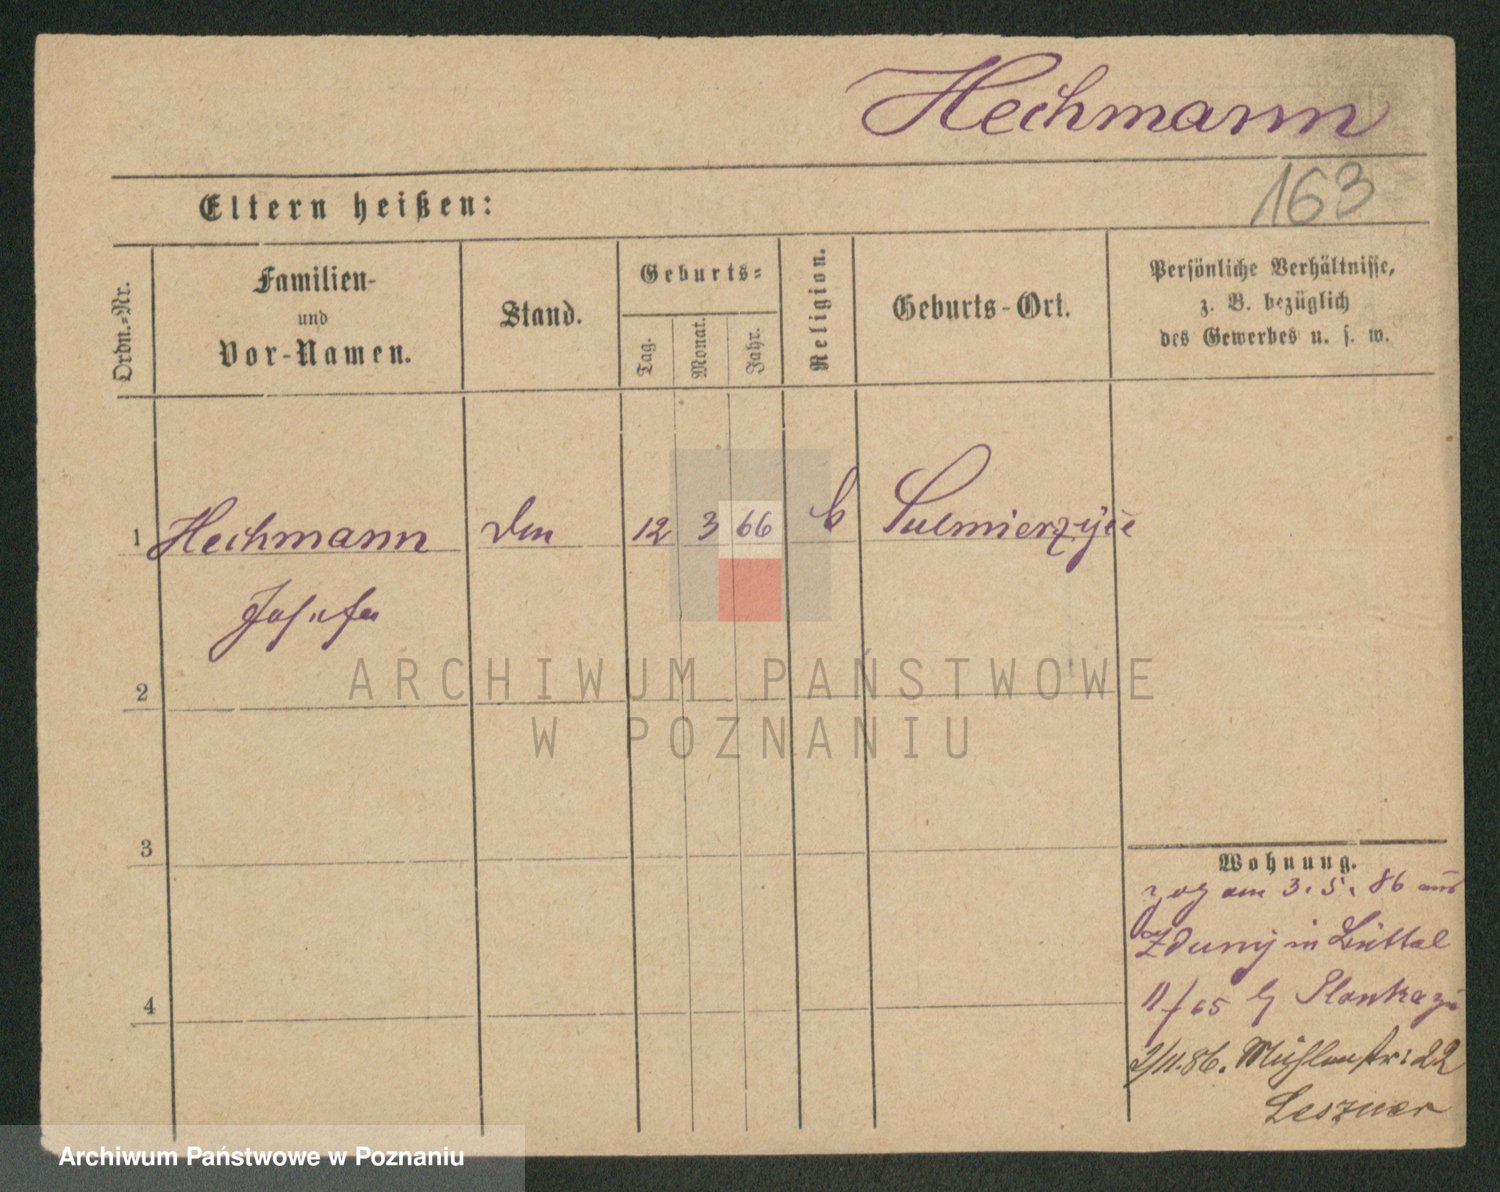 Hechmann
163
Eltern heißen:
Ordn.-Nr.
Familien-
und
Vor-Namen.
Stand.
Geburts-
Tag.
Monat.
Jahr.
Religion.
Geburts-Ort.
Persönliche Verhältnisse,
z. B. bezüglich
des Gewerbes u. s. w.
1 Hechmann 12 3 66 Sulmierzyce
Josefa
2
3
4
Wohnung.
zog am 3. 5. 86 aus
Zduny in
11/65
2/11.86. Mühlenstr: 22
Leszner
ARCHIWUM PAŃSTWOWE
W POZNANIU
Archiwum Państwowe w Poznaniu